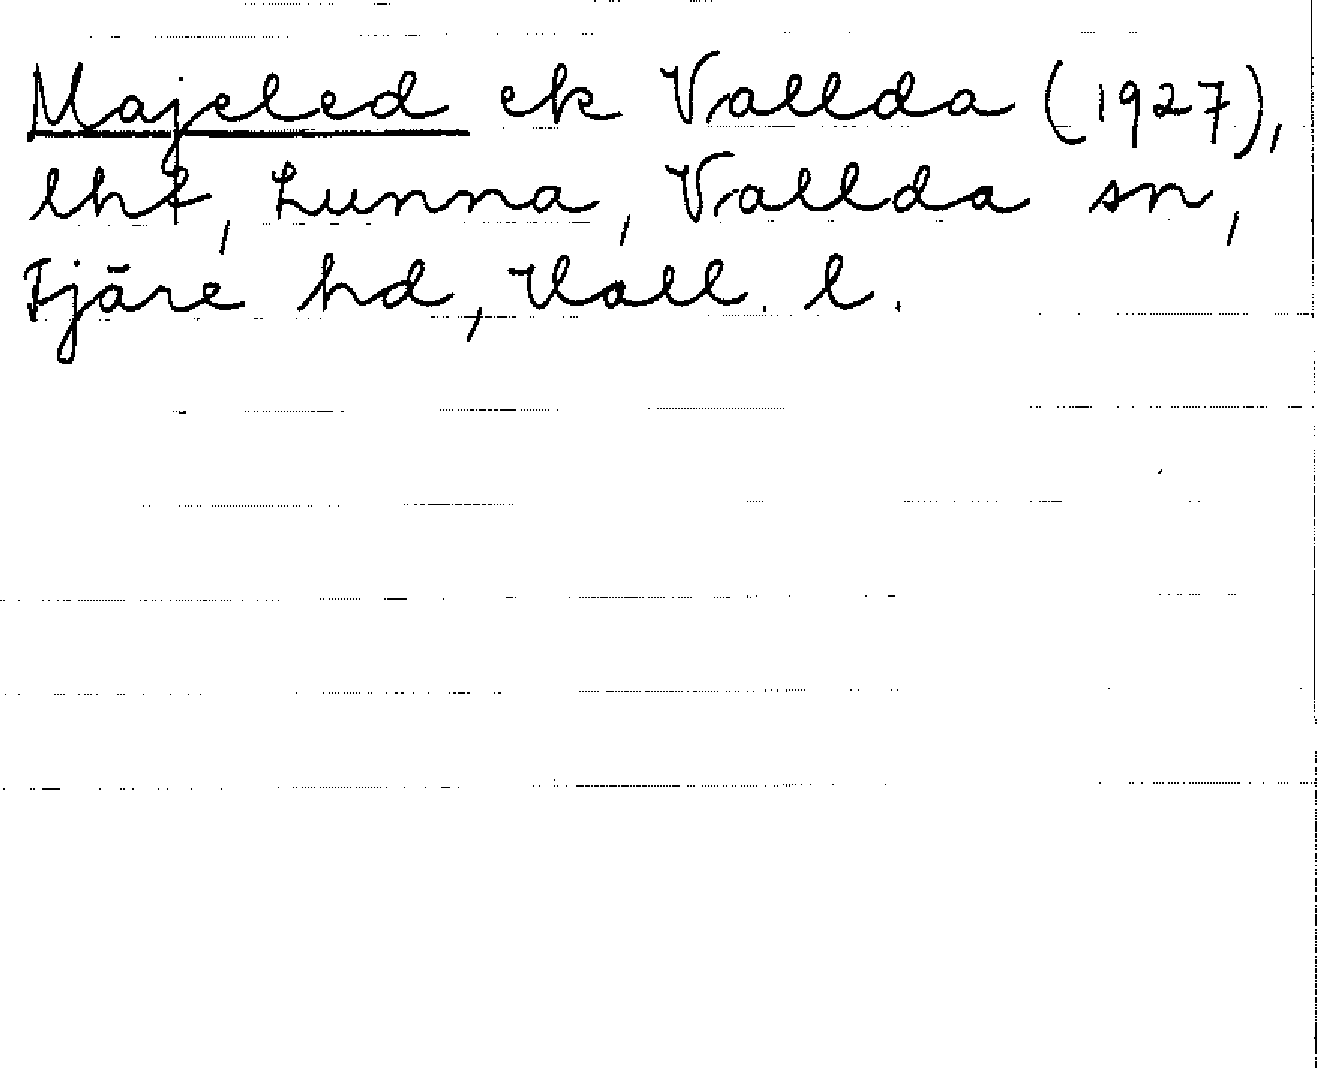 Majeled ek Vallda (1927),
lht, Lunna, Vallda sn,
Fjäre hd, Hall. l.